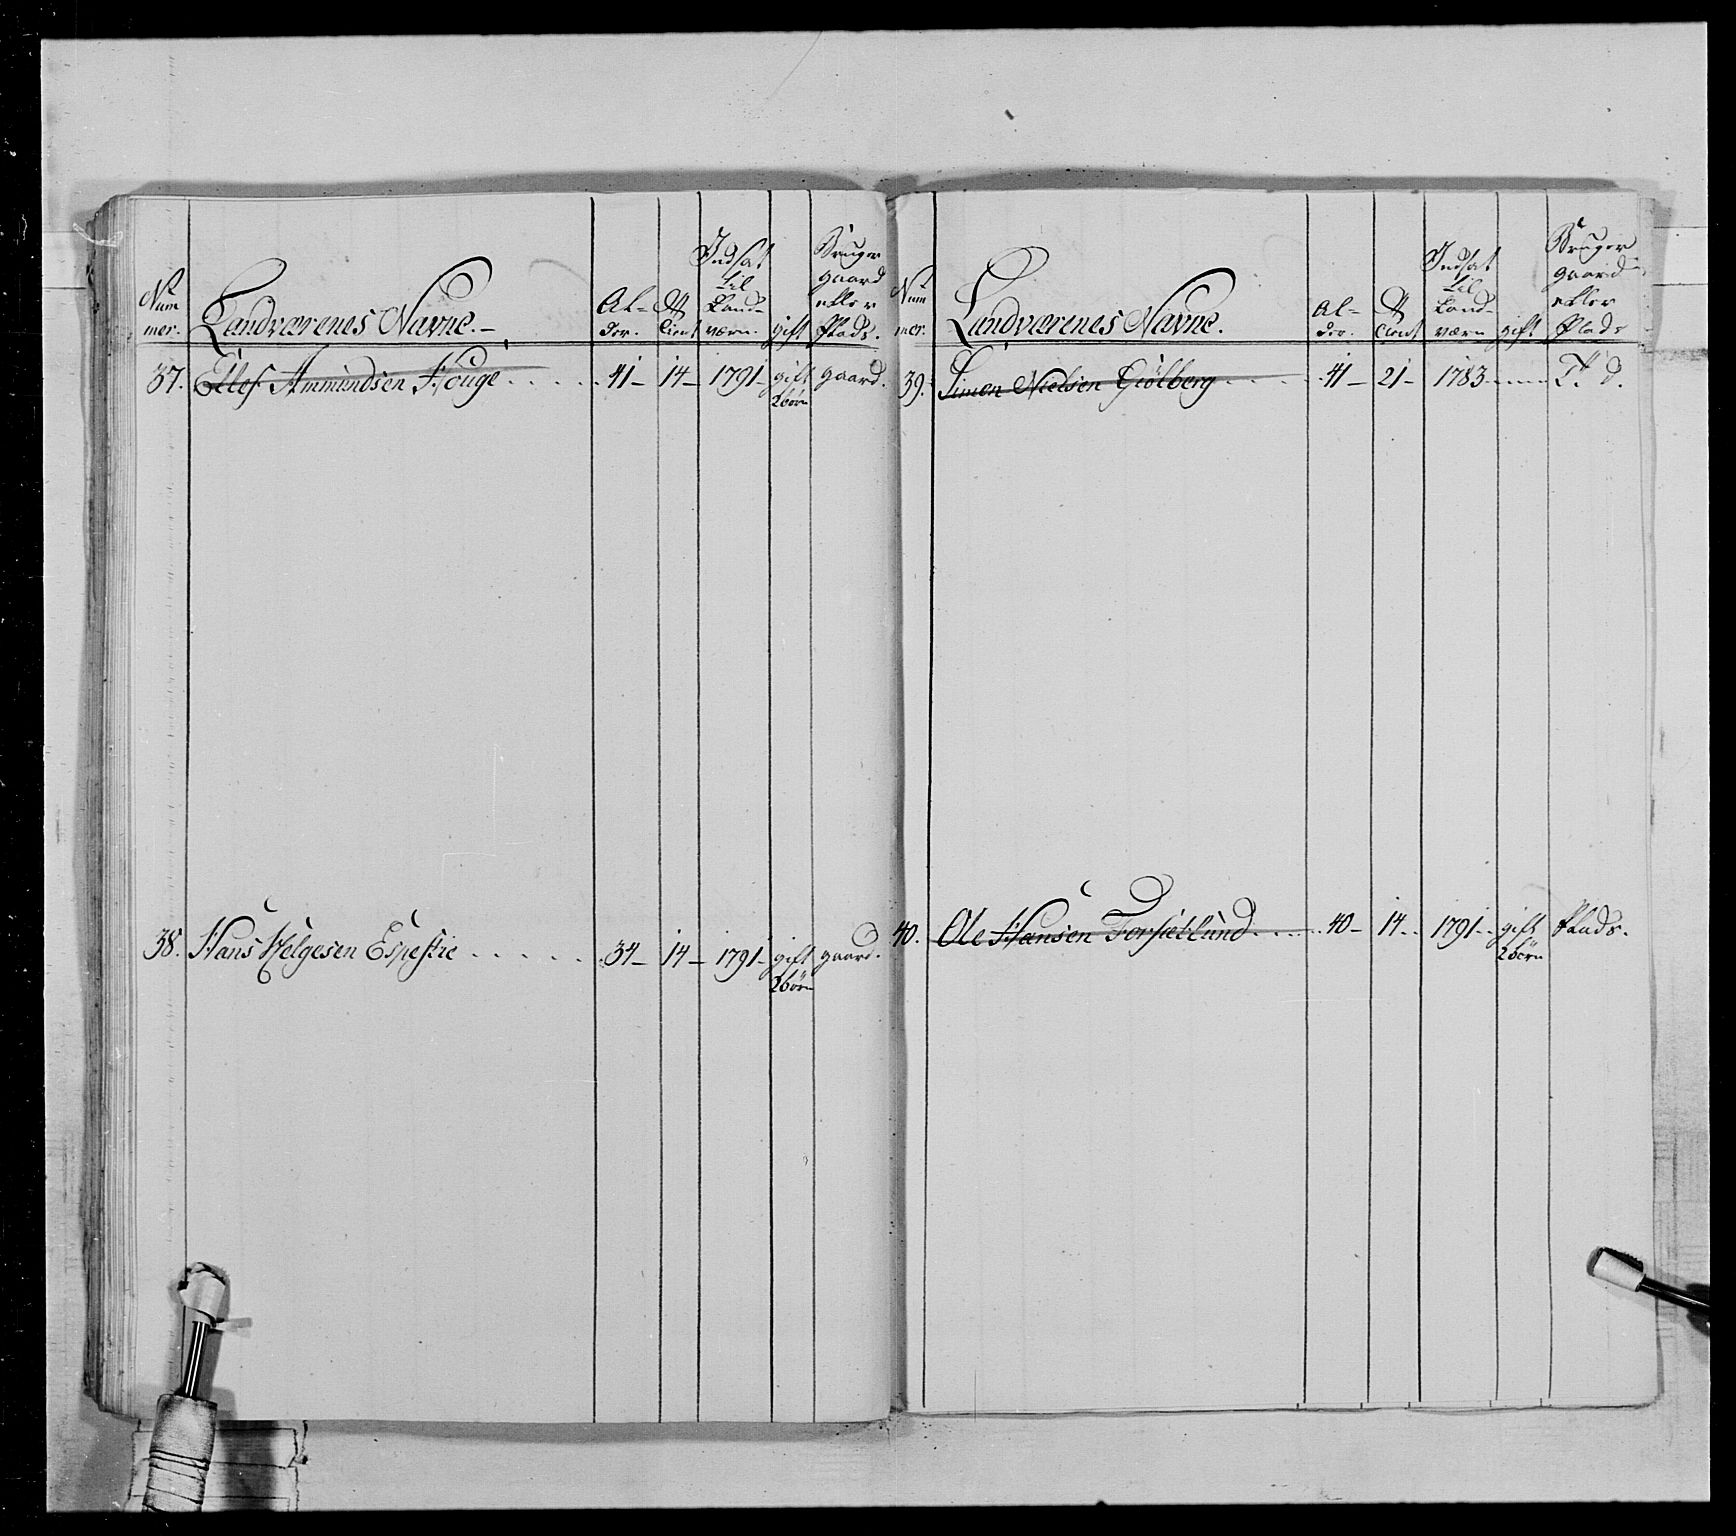 Num
mer.
Landværenes Navne.
Al-
der.
Indsat
til
Land-
værn.
gift
Bruger
gaard
eller
Plads.
37. Ellef Ammundsen Houge . . . . . 41 – 14 – 1791 – gift gaard.
2 børn
38. Hans Helgesen Espeslie . . . . . . 34 – 14 – 1791 – gift gaard.
2 børn
Num
mer.
Landværenes Navne.
Al-
der.
Indsat
til
Land-
værn
gift
Bruger
gaard
eller
Plads
39. Simen Nielsen Giölberg . . . . 41 – 21 – 1783
40. Ole Hansen Forsætlund . . . . 40 – 14 . . 1791 . . gift Plads.
2 børn